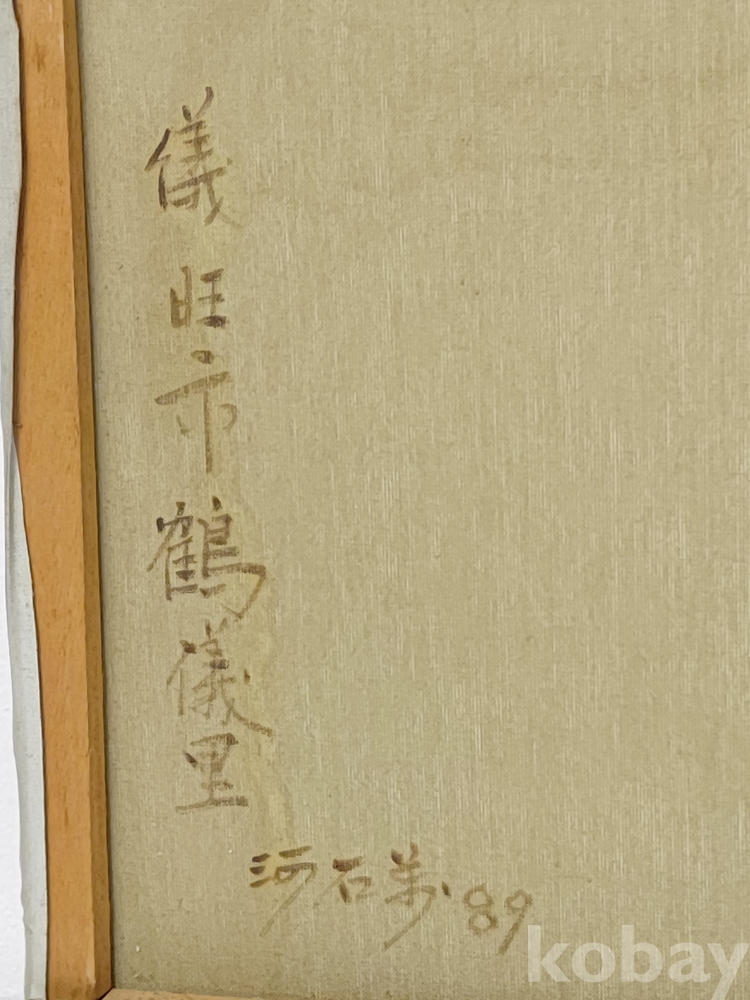 儀旺市鶴儀里
河石萬 89
kobay